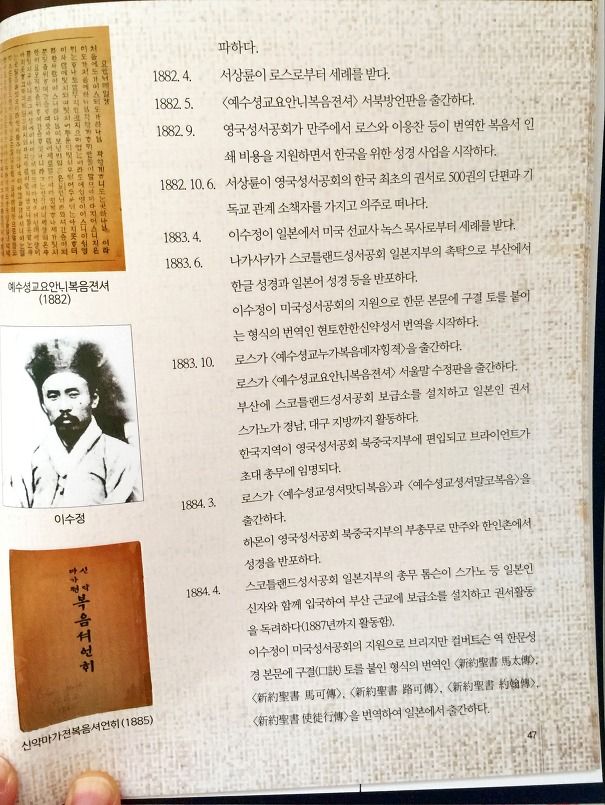 파하다.
1882. 4. 서상륜이 로스로부터 세례를 받다.
1882. 5. 〈예수셩교요안니복음젼셔〉 서북방언판을 출간하다.
1882. 9. 영국성서공회가 만주에서 로스와 이응찬 등이 번역한 복음서 인
쇄 비용을 지원하면서 한국을 위한 성경 사업을 시작하다.
1882. 10. 6. 서상륜이 영국성서공회의 한국 최초의 권서로 500권의 단편과 기
독교 관계 소책자를 가지고 의주로 떠나다.
1883. 4. 이수정이 일본에서 미국 선교사 녹스 목사로부터 세례를 받다.
1883. 6. 나가사카가 스코틀랜드성서공회 일본지부의 촉탁으로 부산에서
한글 성경과 일본어 성경 등을 반포하다.
이수정이 미국성서공회의 지원으로 한문 본문에 구결 토를 붙이
는 형식의 번역인 현토한한신약성서 번역을 시작하다.
1883. 10. 로스가 〈예수셩교누가복음뎨자힝젹〉을 출간하다.
로스가 〈예수셩교요안니복음젼셔〉 서울말 수정판을 출간하다.
부산에 스코틀랜드성서공회 보급소를 설치하고 일본인 권서
스가노가 경남, 대구 지방까지 활동하다.
한국지역이 영국성서공회 북중국지부에 편입되고 브라이언트가
초대 총무에 임명되다.
1884. 3. 로스가 〈예수셩교셩셔맛디복음〉과 〈예수셩교셩셔말코복음〉을
출간하다.
하몬이 영국성서공회 북중국지부의 부총무로 만주와 한인촌에서
성경을 반포하다.
1884. 4. 스코틀랜드성서공회 일본지부의 총무 톰슨이 스가노 등 일본인
신자와 함께 입국하여 부산 근교에 보급소를 설치하고 권서활동
을 독려하다(1887년까지 활동함).
이수정이 미국성서공회의 지원으로 브리지만 컬버트슨 역 한문성
경 본문에 구결(口訣) 토를 붙인 형식의 번역인 〈新約聖書 馬太傳〉,
〈新約聖書 馬可傳〉, 〈新約聖書 路可傳〉, 〈新約聖書 約翰傳〉,
〈新約聖書 使徒行傳〉을 번역하여 일본에서 출간하다.
예수셩교요안니복음젼셔
(1882)
이수정
신약
마가젼
복음셔언히
신약마가젼복음셔언히(1885)
47